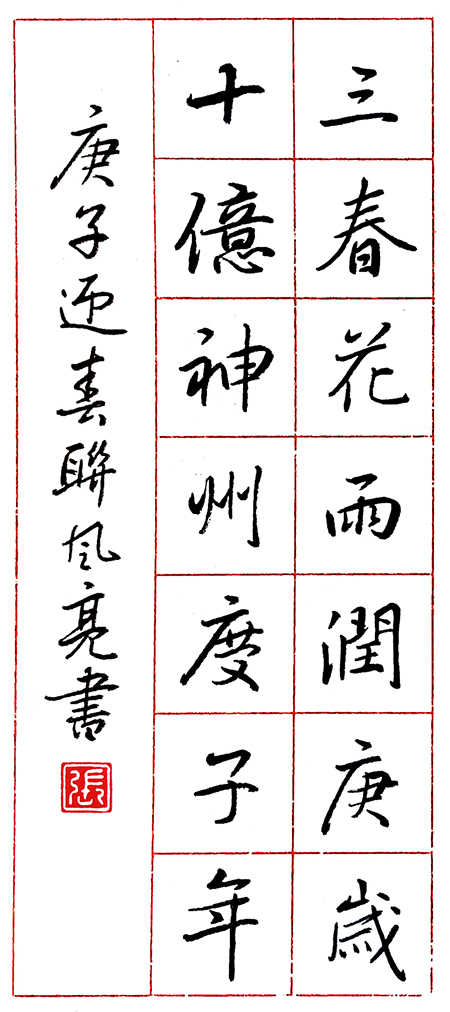 三春花雨潤庚歲
十億神州度子年
庚子迎春聯风亮書
張